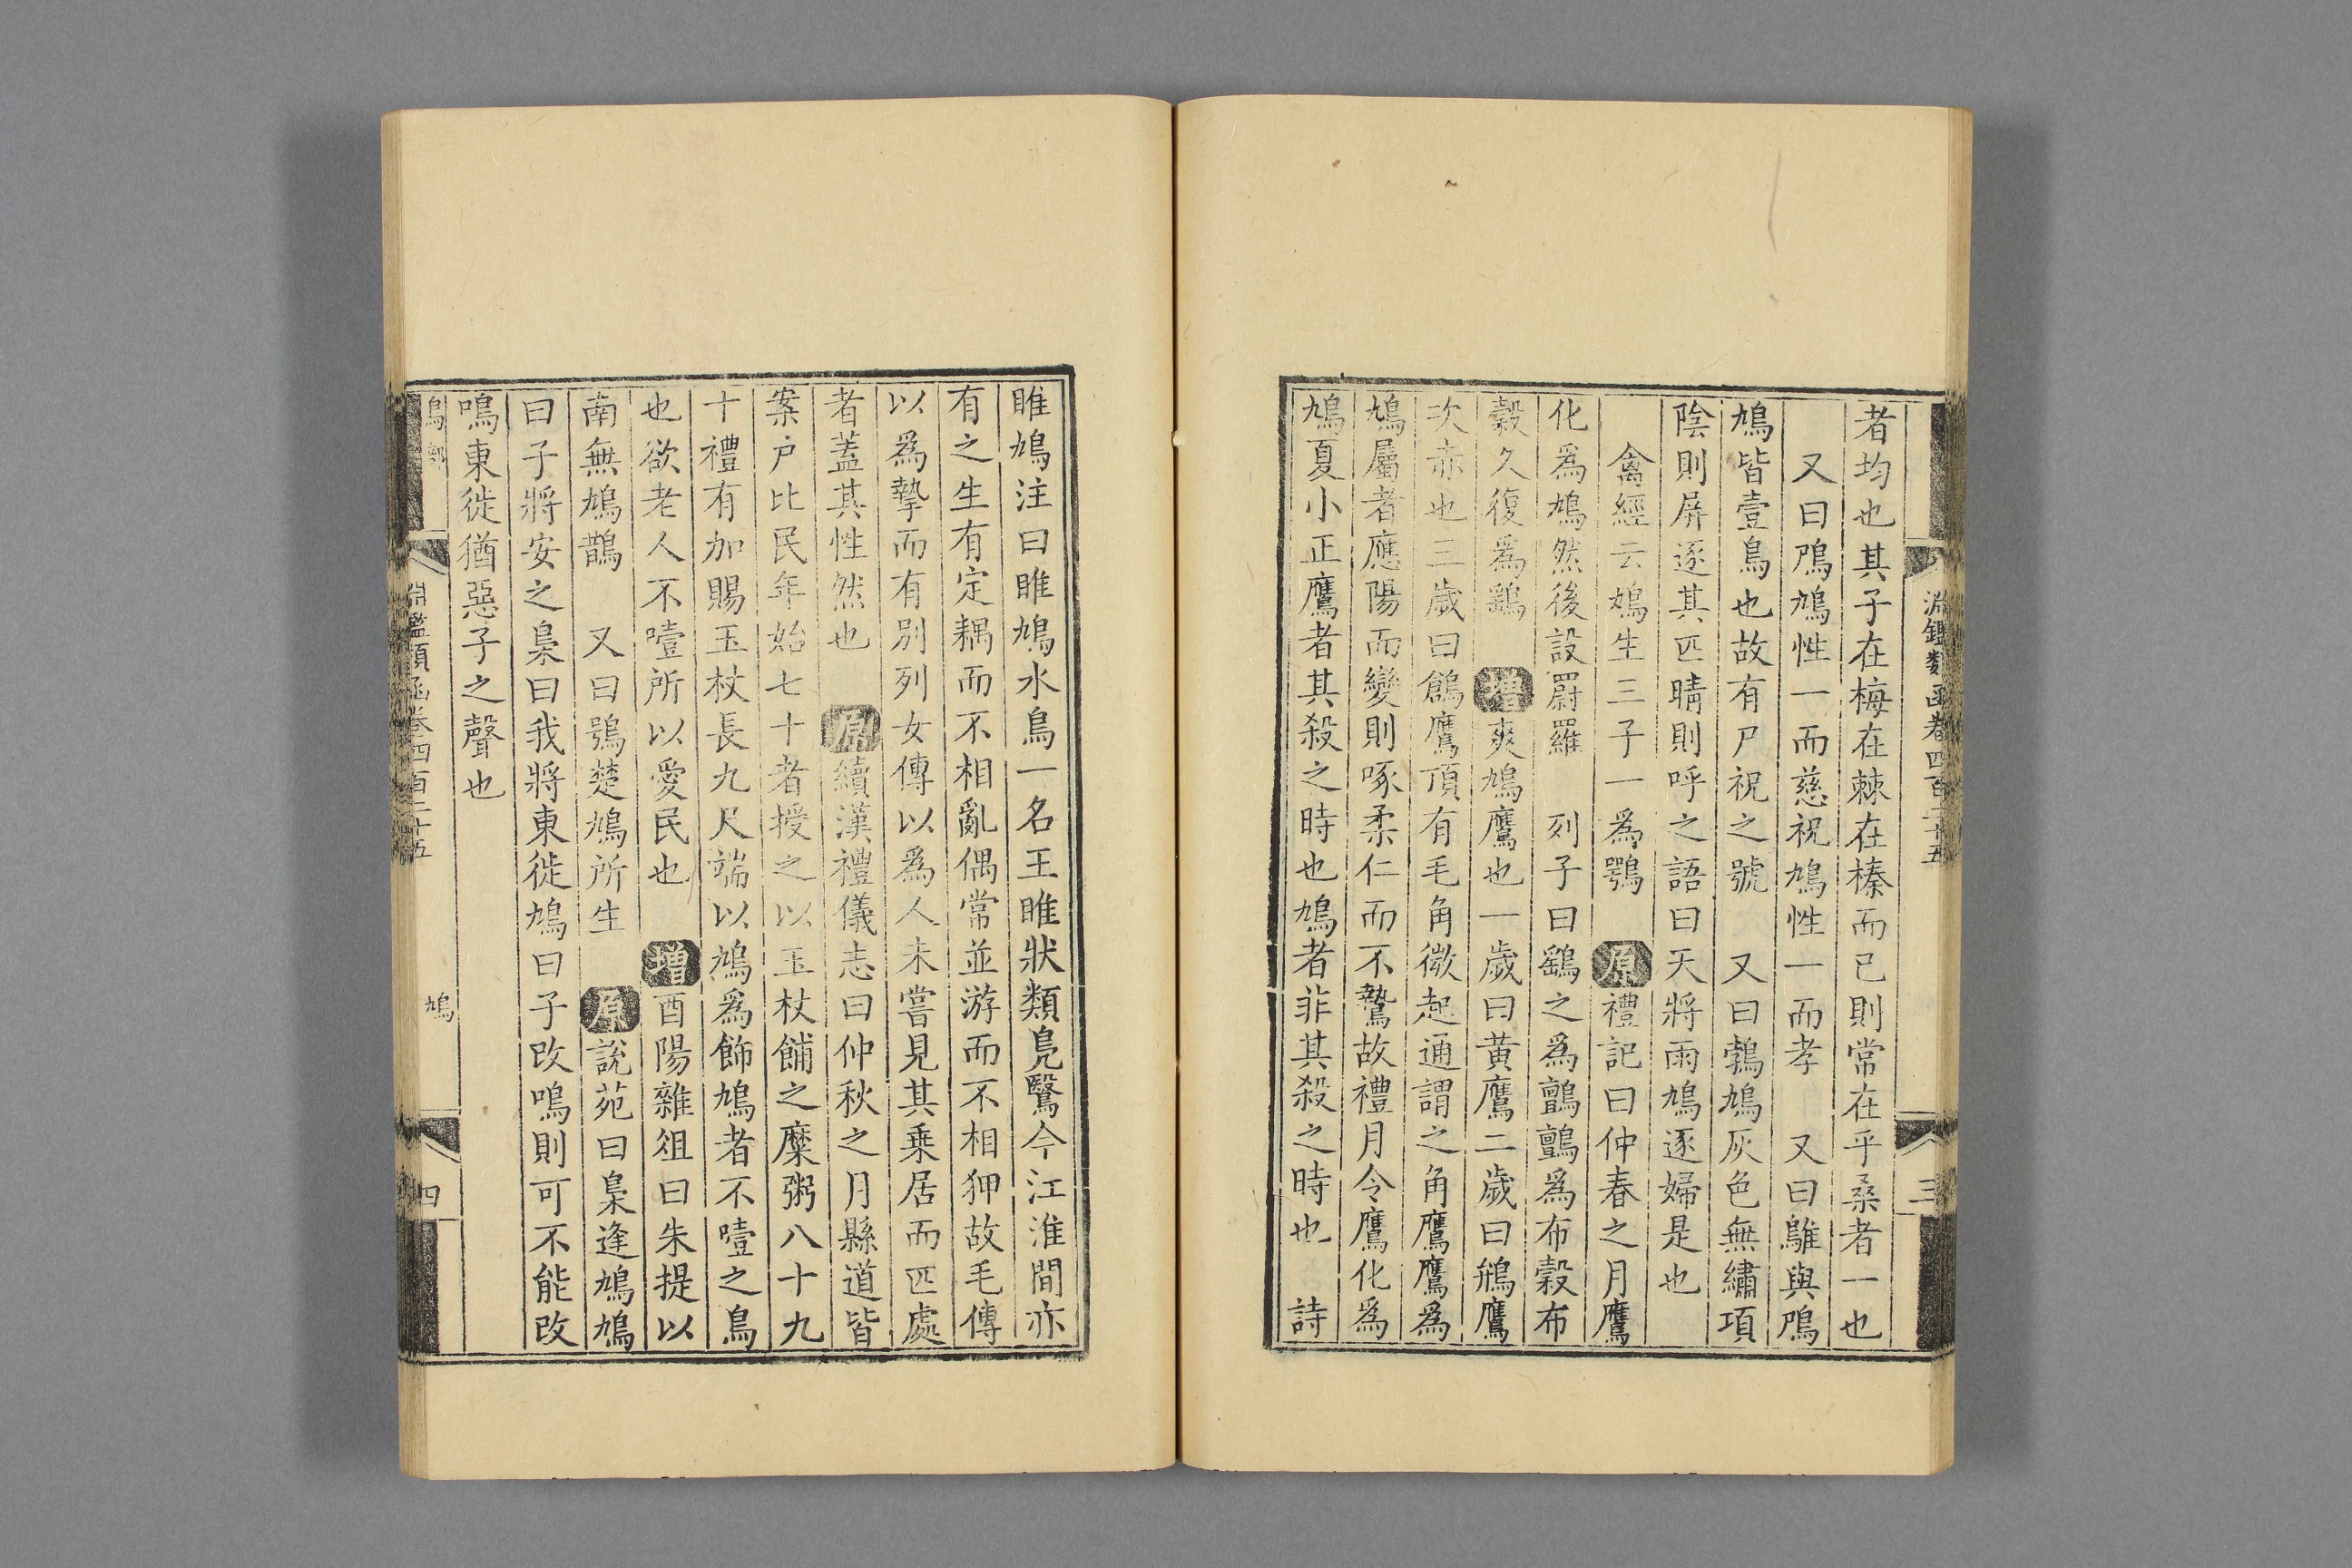 淵鑑類函卷四百二十五
三
者均也其子在梅在棘在榛而已則常在乎桑者一也
又曰鳲鳩性一而慈祝鳩性一而孝 又曰鵻與鳲
鳩皆壹鳥也故有尸祝之號 又曰鶉鳩灰色無繡項
陰則屏逐其匹晴則呼之語曰天將雨鳩逐婦是也
禽經云鳩生三子一為鶚 原禮記曰仲春之月鷹
化為鳩然後設罻羅 列子曰鷂之為鸇鸇為布穀布
穀久復為鷂 增爽鳩鷹也一歲曰黃鷹二歲曰鴘鷹
次赤也三歲曰鶬鷹頂有毛角微起通謂之角鷹鷹為
鳩屬者應陽而變則啄柔仁而不鷙故禮月令鷹化為
鳩夏小正鷹者其殺之時也鳩者非其殺之時也 詩
雎鳩注曰雎鳩水鳥一名王雎狀類鳧鷖今江淮間亦
有之生有定耦而不相亂偶常並游而不相狎故毛傳
以為摯而有別列女傳以為人未嘗見其乘居而匹處
者蓋其性然也 原續漢禮儀志曰仲秋之月縣道皆
案户比民年始七十者授之以玉杖餔之糜粥八十九
十禮有加賜玉杖長九尺端以鳩為飾鳩者不噎之鳥
也欲老人不噎所以愛民也 增酉陽雜俎曰朱提以
南無鳩鵲 又曰鶚楚鳩所生 原說苑曰梟逢鳩鳩
曰子將安之梟曰我將東徙鳩曰子改鳴則可不能改
鳴東徙猶惡子之聲也
鳥部
淵鑑類函卷四百二十五
鳩
四